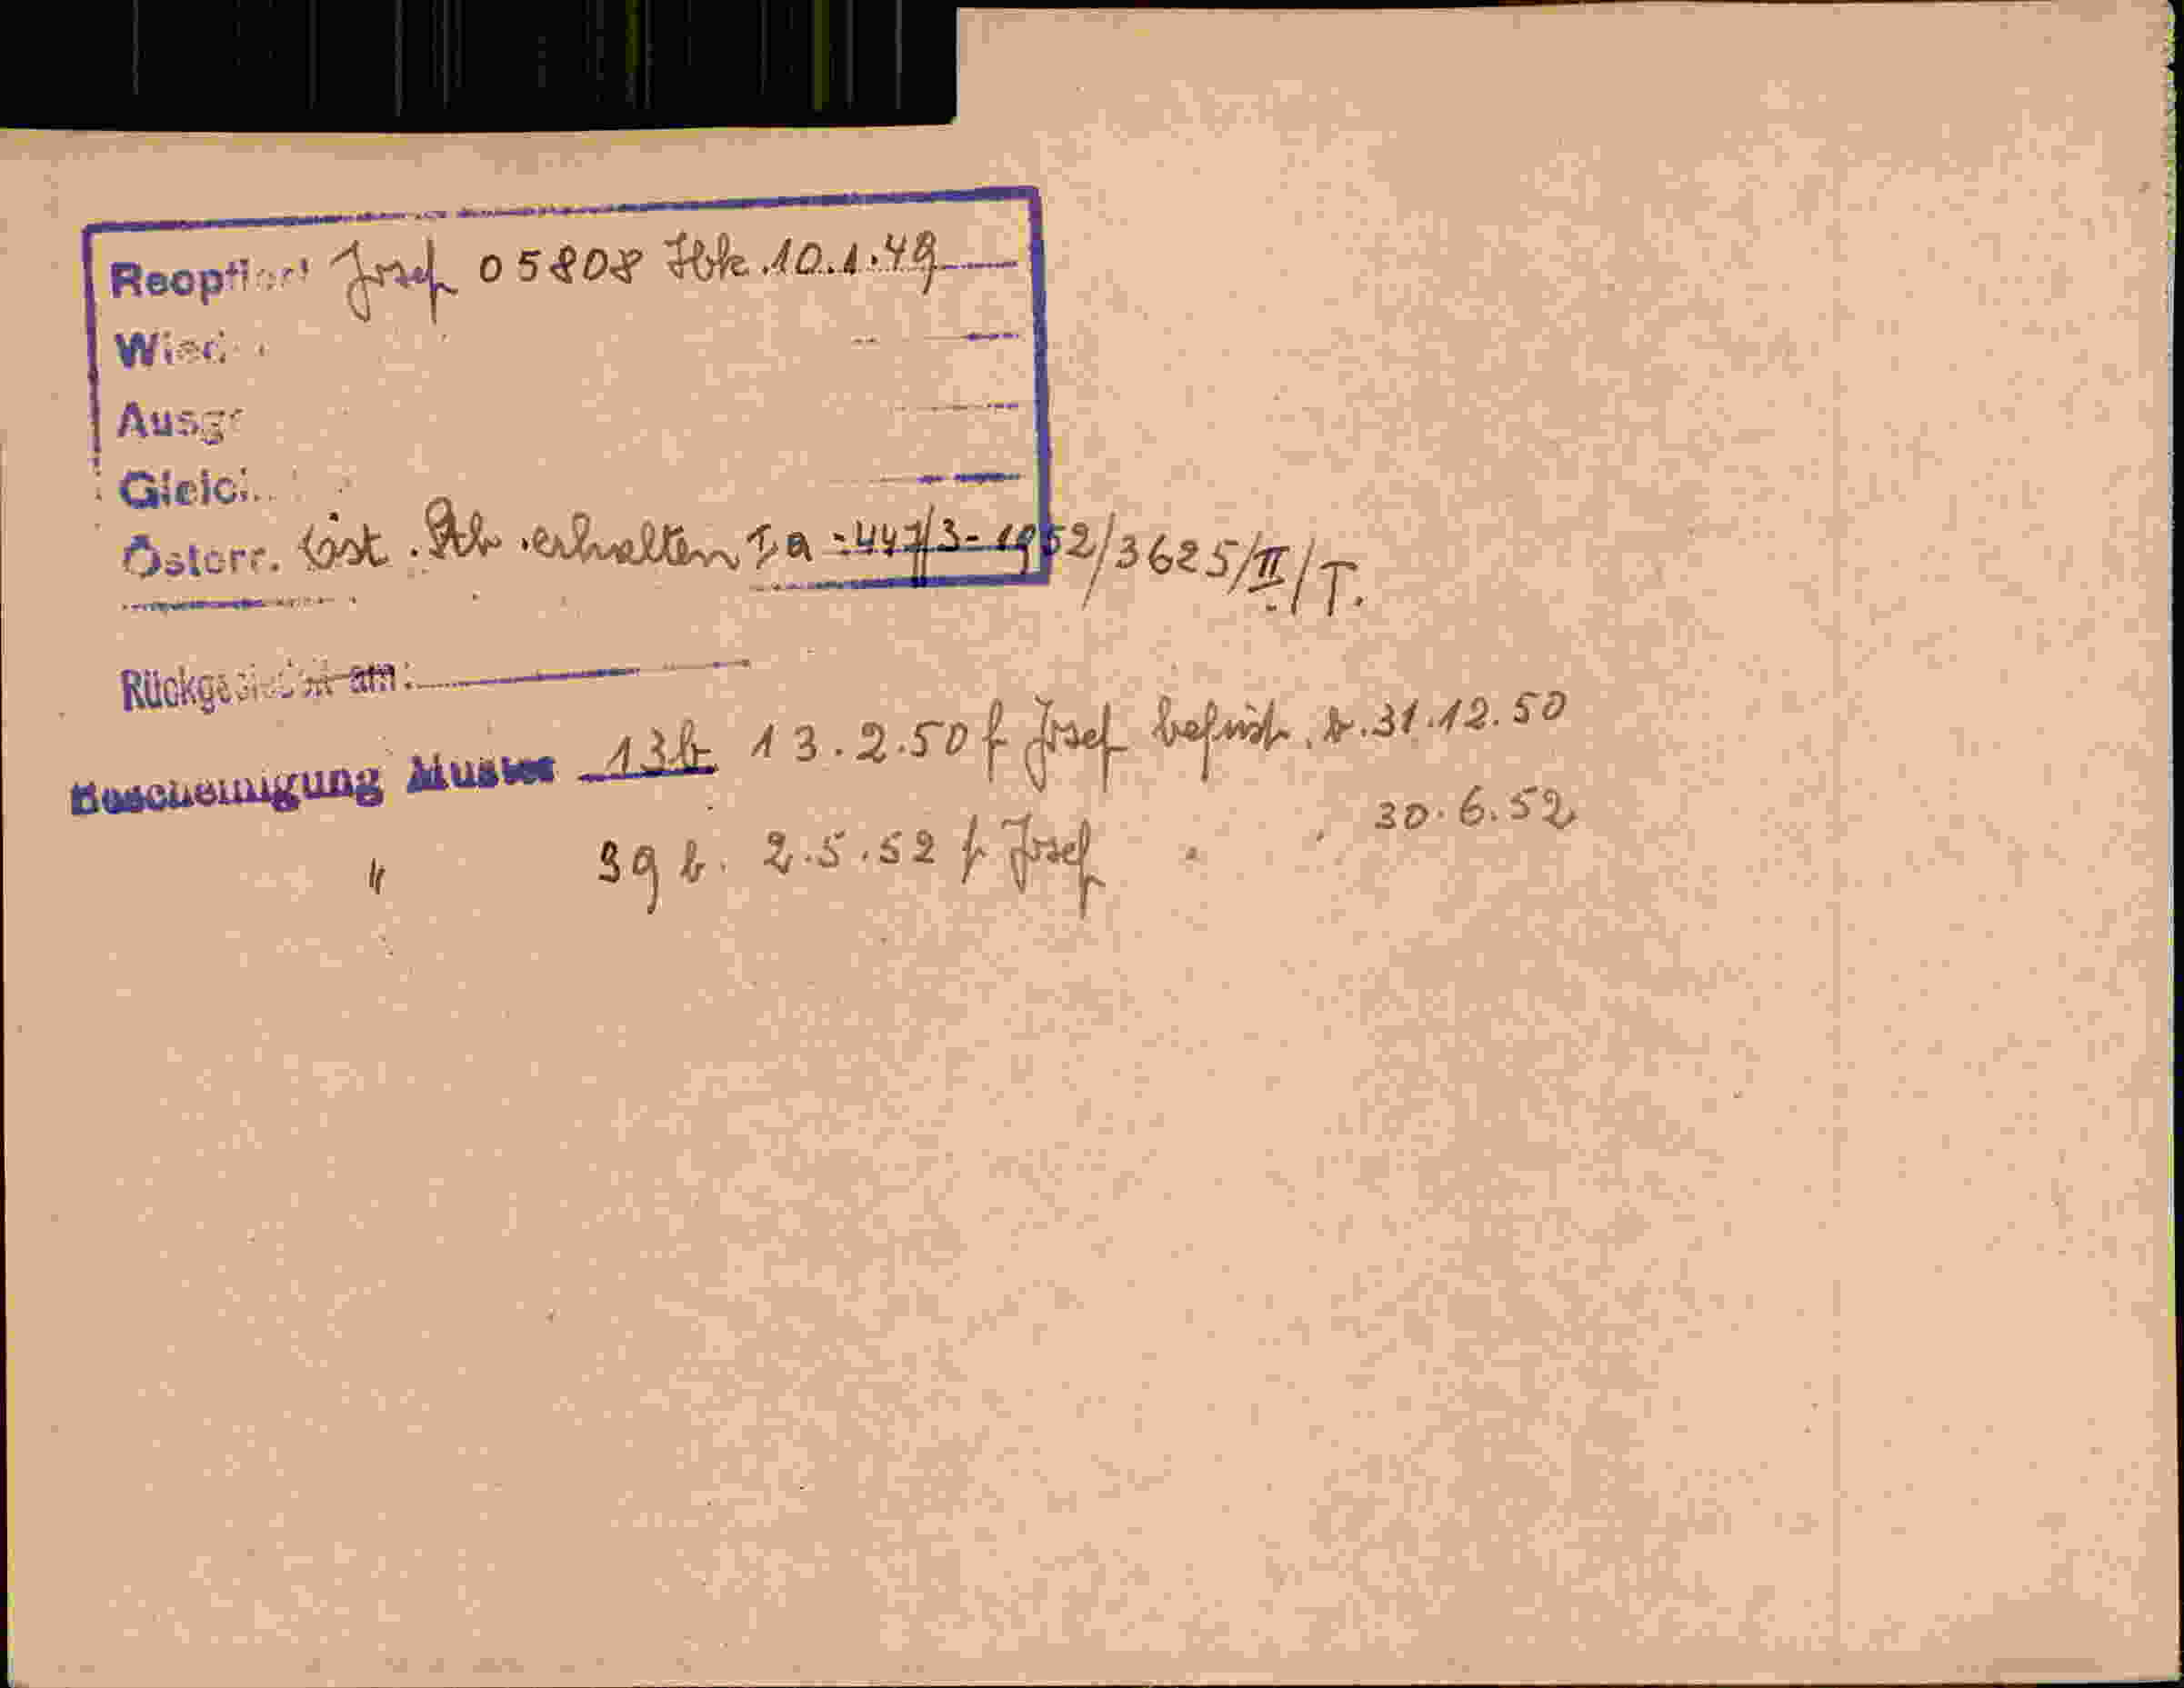 Reoptiert Josef 05808 Ibk. 10.1.49
Wied
Ausge
Gleich
Österr. Öst. Stb. erhalten Ia-447/3-1952/3625/II/T.
Rückgesiedelt am:
Bescheinigung Muster 13b 13.2.50 f Josef befrist. b. 31.12.50
" 39 b. 2.5.52 f Josef " " 30.6.52